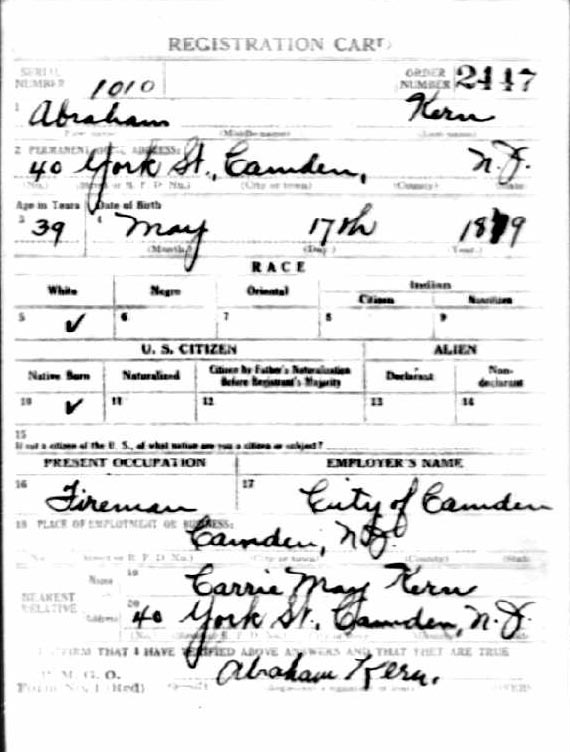 REGISTRATION CARD
SERIAL NUMBER 1010 ORDER NUMBER 2447
1 Abraham Kern
(First name) (Middle name) (Last name)
2 PERMANENT HOME ADDRESS:
40 York St., Camden, N.J.
(No.) (Street or R. F. D. No.) (City or town) (County) (State)
Age in Years Date of Birth
3 39 4 May 17th 1879
(Month) (Day) (Year)
RACE
White Negro Oriental Indian
Citizen Noncitizen
5 ✓ 6 7 8 9
U. S. CITIZEN ALIEN
Native Born Naturalized Citizen by Father's Naturalization Before Registrant's Majority Declarant Non-declarant
10 ✓ 11 12 13 14
15
If not a citizen of the U. S., of what nation are you a citizen or subject?
PRESENT OCCUPATION EMPLOYER'S NAME
16 Fireman 17 City of Camden
18 PLACE OF EMPLOYMENT OR BUSINESS:
Camden, N.J.
(No.) (Street or R. F. D. No.) (City or town) (County) (State)
NEAREST RELATIVE Name 19 Carrie May Kern
Address 20 40 York St., Camden, N.J.
(No.) (Street or R. F. D. No.) (County) (State)
I AFFIRM THAT I HAVE VERIFIED ABOVE ANSWERS AND THAT THEY ARE TRUE
P. M. G. O.
Form No. 1 (Red) Abraham Kern.
(OVER)